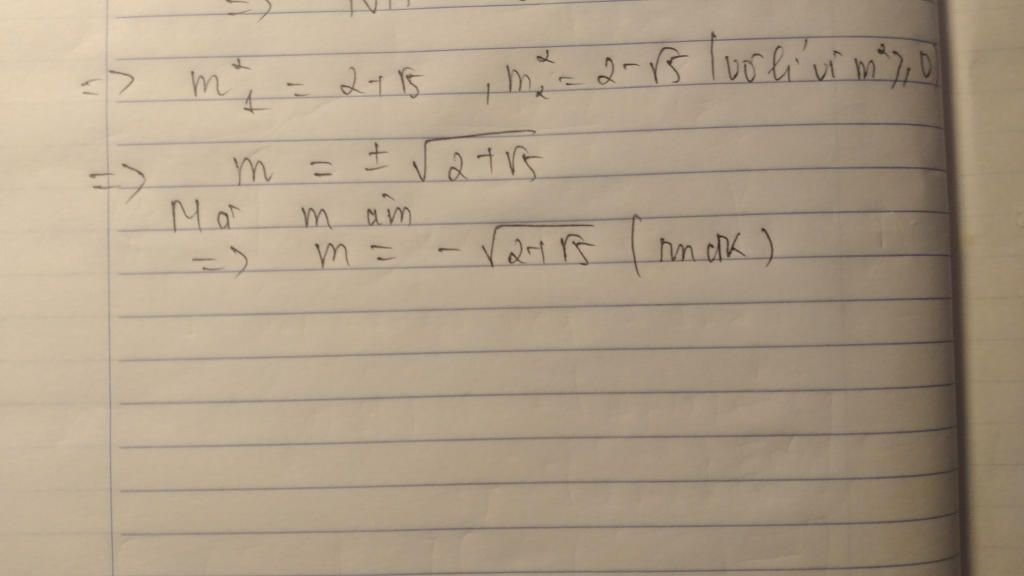 => m₁² = 2+√5 , m₂² = 2-√5 (vô lí vì m² ≥ 0
=> m = ± √(2+√5)
Mà m âm
=> m = - √(2+√5) (tmđk)